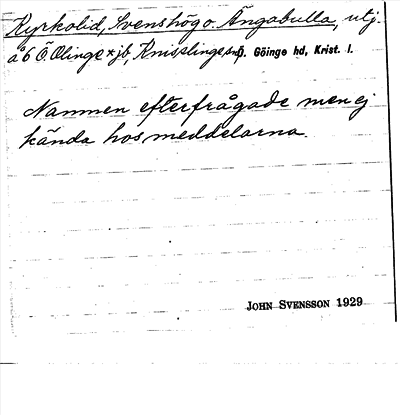 Kyrkolid, Svenshög o. Ängabulla, utj.
å 6 Ö Olinge * jb, Knislinge sn, Ö. Göinge hd, Krist. l.
Namnen efterfrågade men ej
kända hos meddelarna.
JOHN SVENSSON 1929